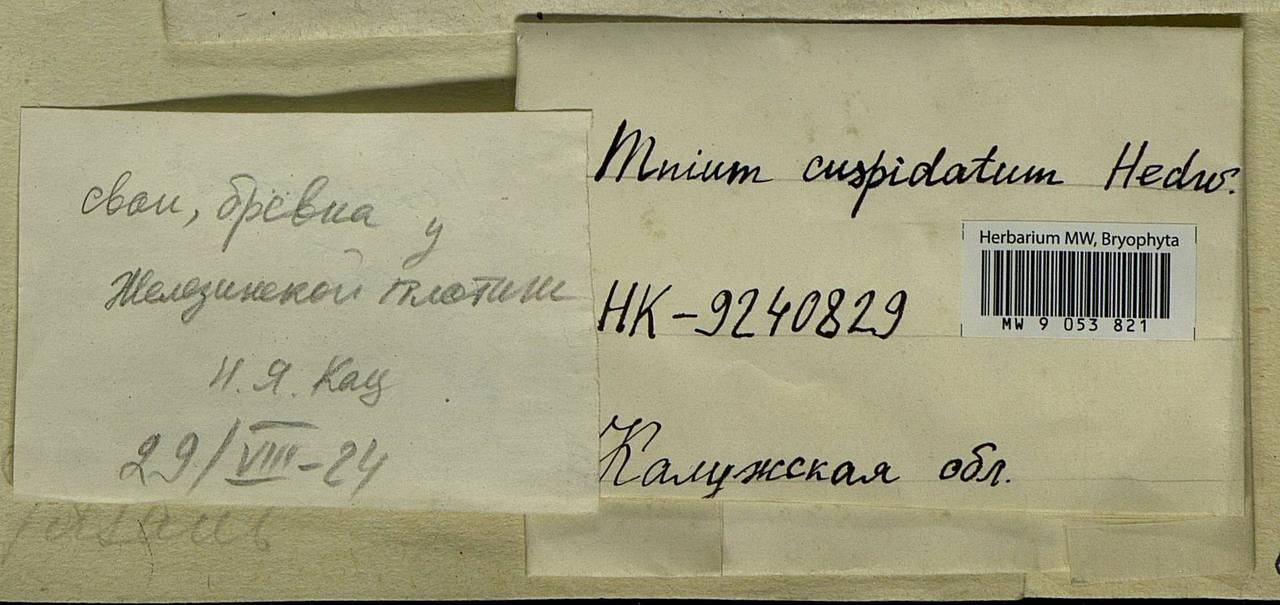 сваи, брёвна у
Железинской плотины
Н. Я. Кац
29/VIII-24
Mnium cuspidatum Hedw.
Herbarium MW, Bryophyta
MW 9 053 821
НК-9240829
Калужская обл.